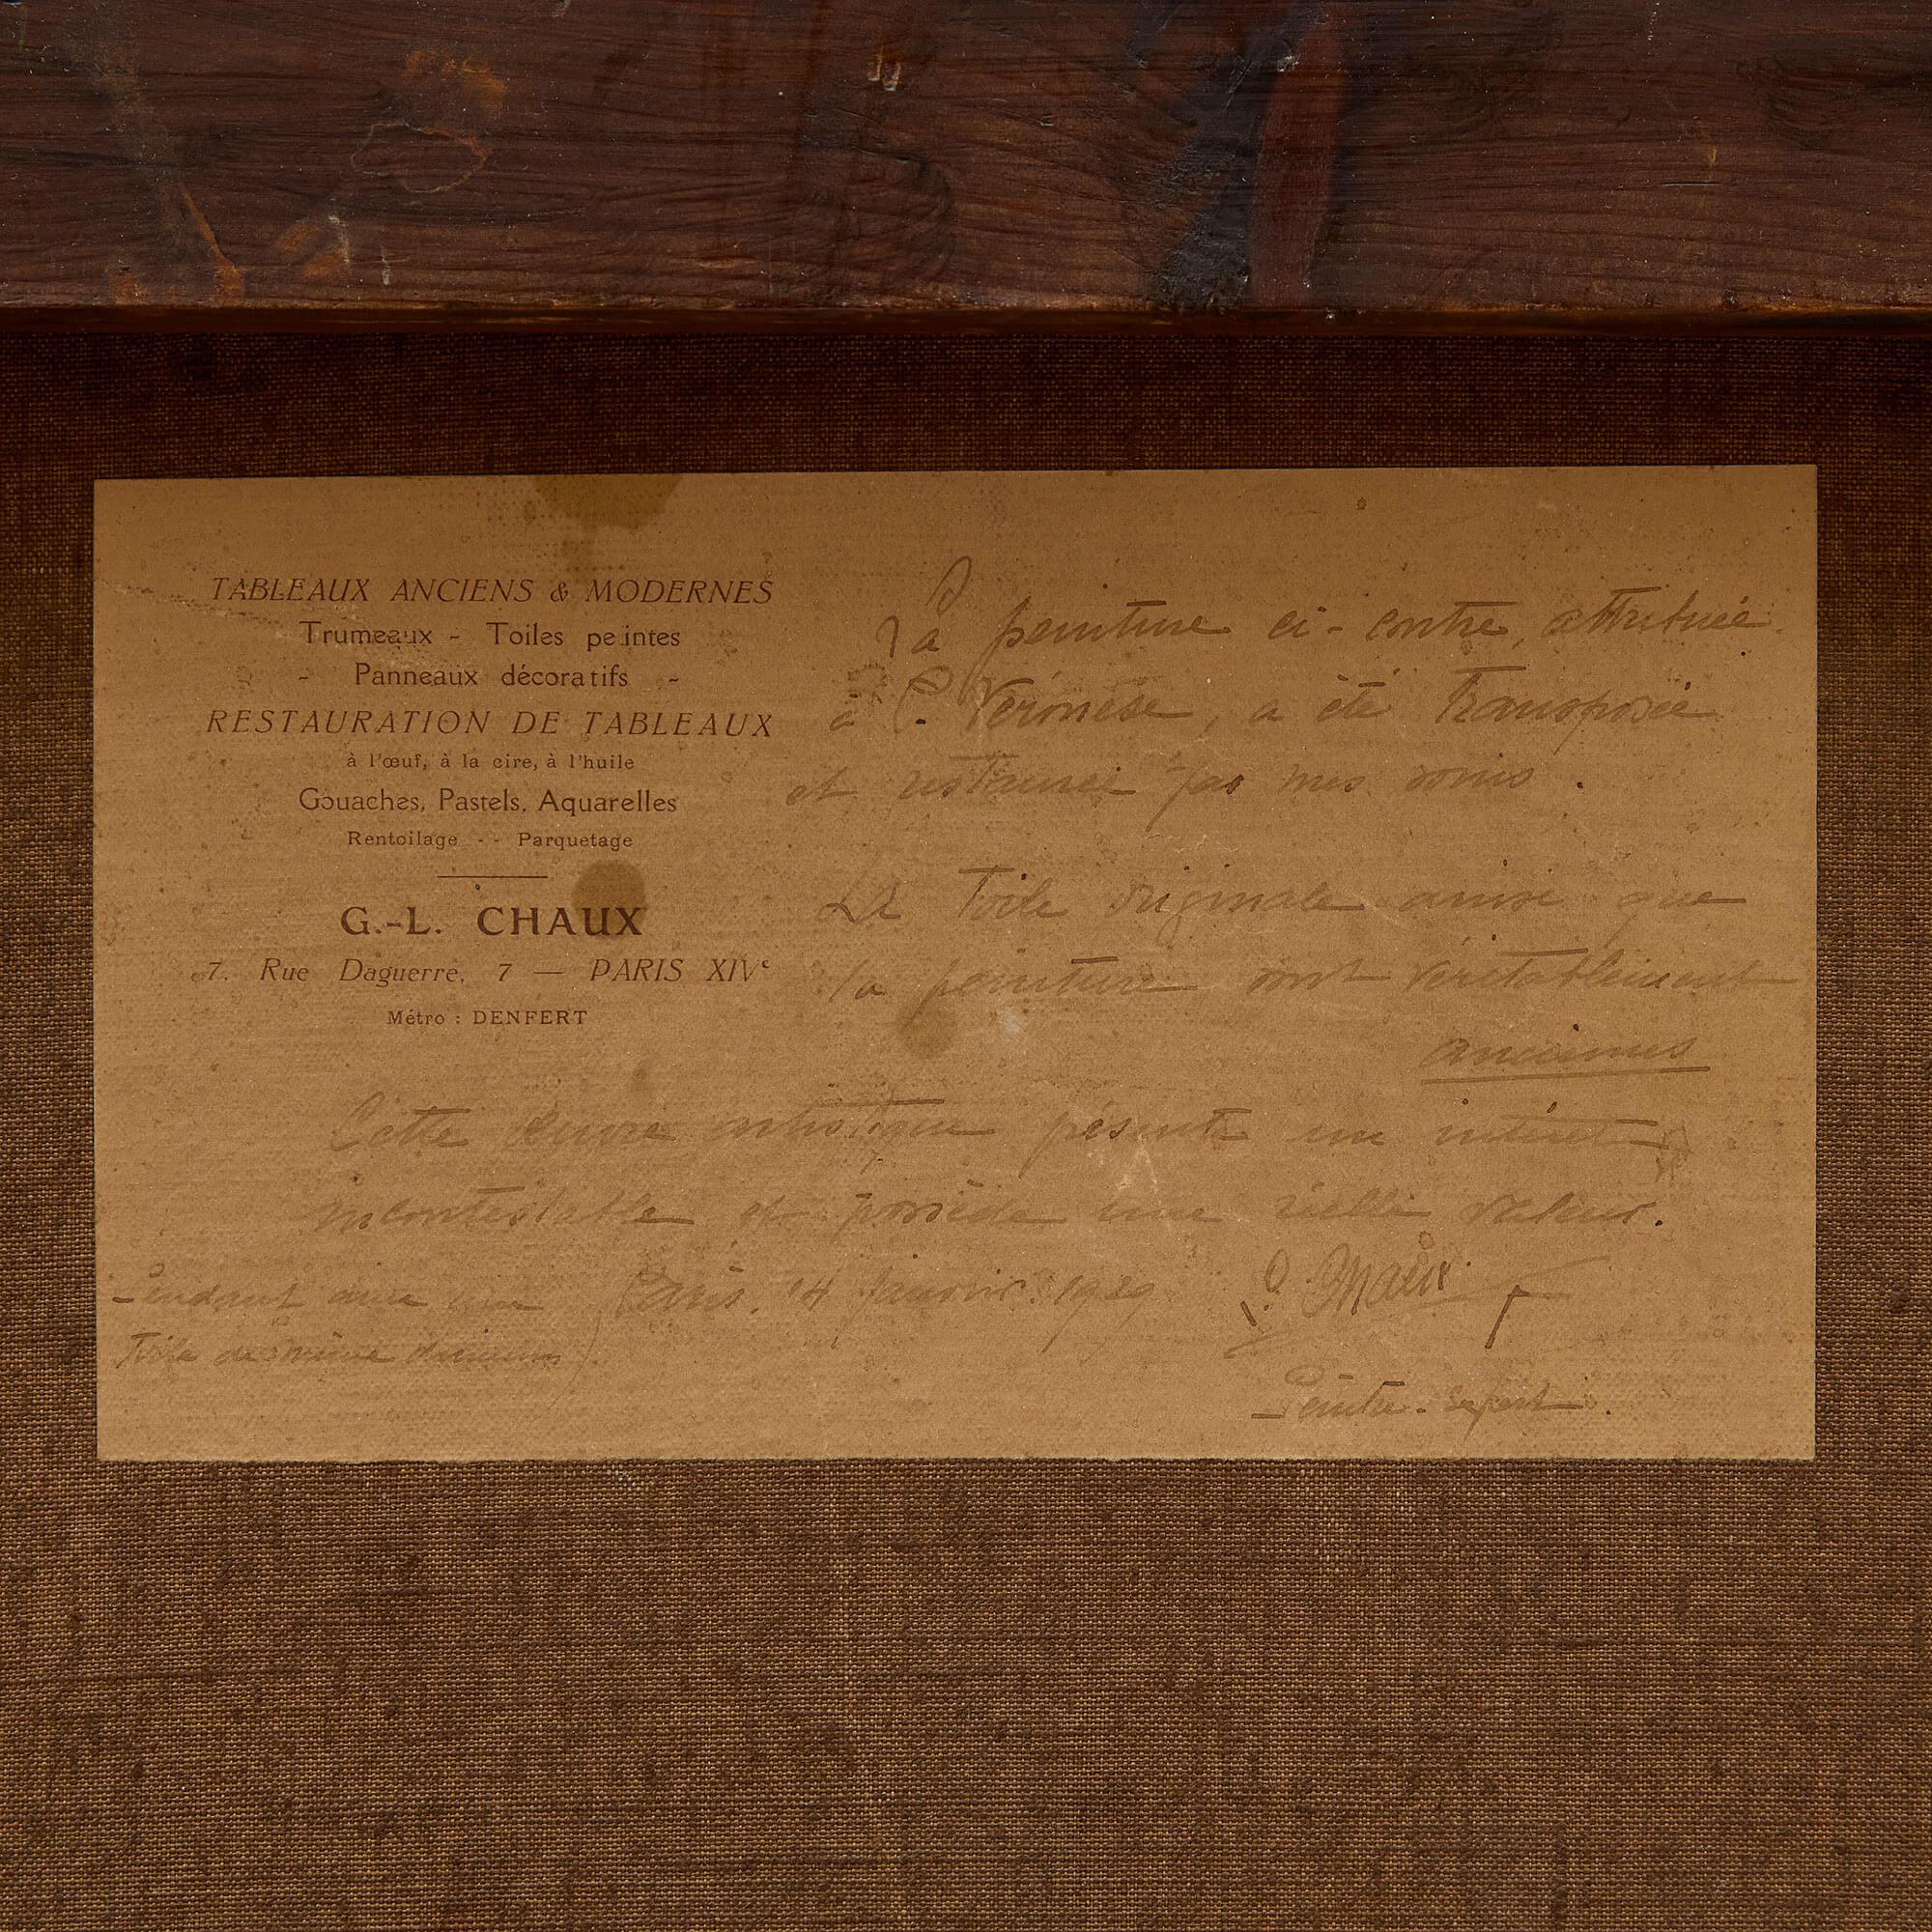 TABLEAUX ANCIENS & MODERNES
Trumeaux - Toiles peintes
- Panneaux décoratifs -
RESTAURATION DE TABLEAUX
à l'œuf, à la cire, à l'huile
Gouaches, Pastels, Aquarelles
Rentoilage - - Parquetage
G.-L. CHAUX
7, Rue Daguerre, 7 — PARIS XIVe
Métro : DENFERT
La peinture ci-contre, attribuée
à P. Véronèse, a été transposée
et restaurée par mes soins.
La toile originale ainsi que
la peinture sont véritablement
anciennes
Cette œuvre artistique présente un intérêt
incontestable et possède une réelle valeur.
Paris, 14 Janvier 1929
Peintre-Expert.
Pendant avec une
toile de même dimension